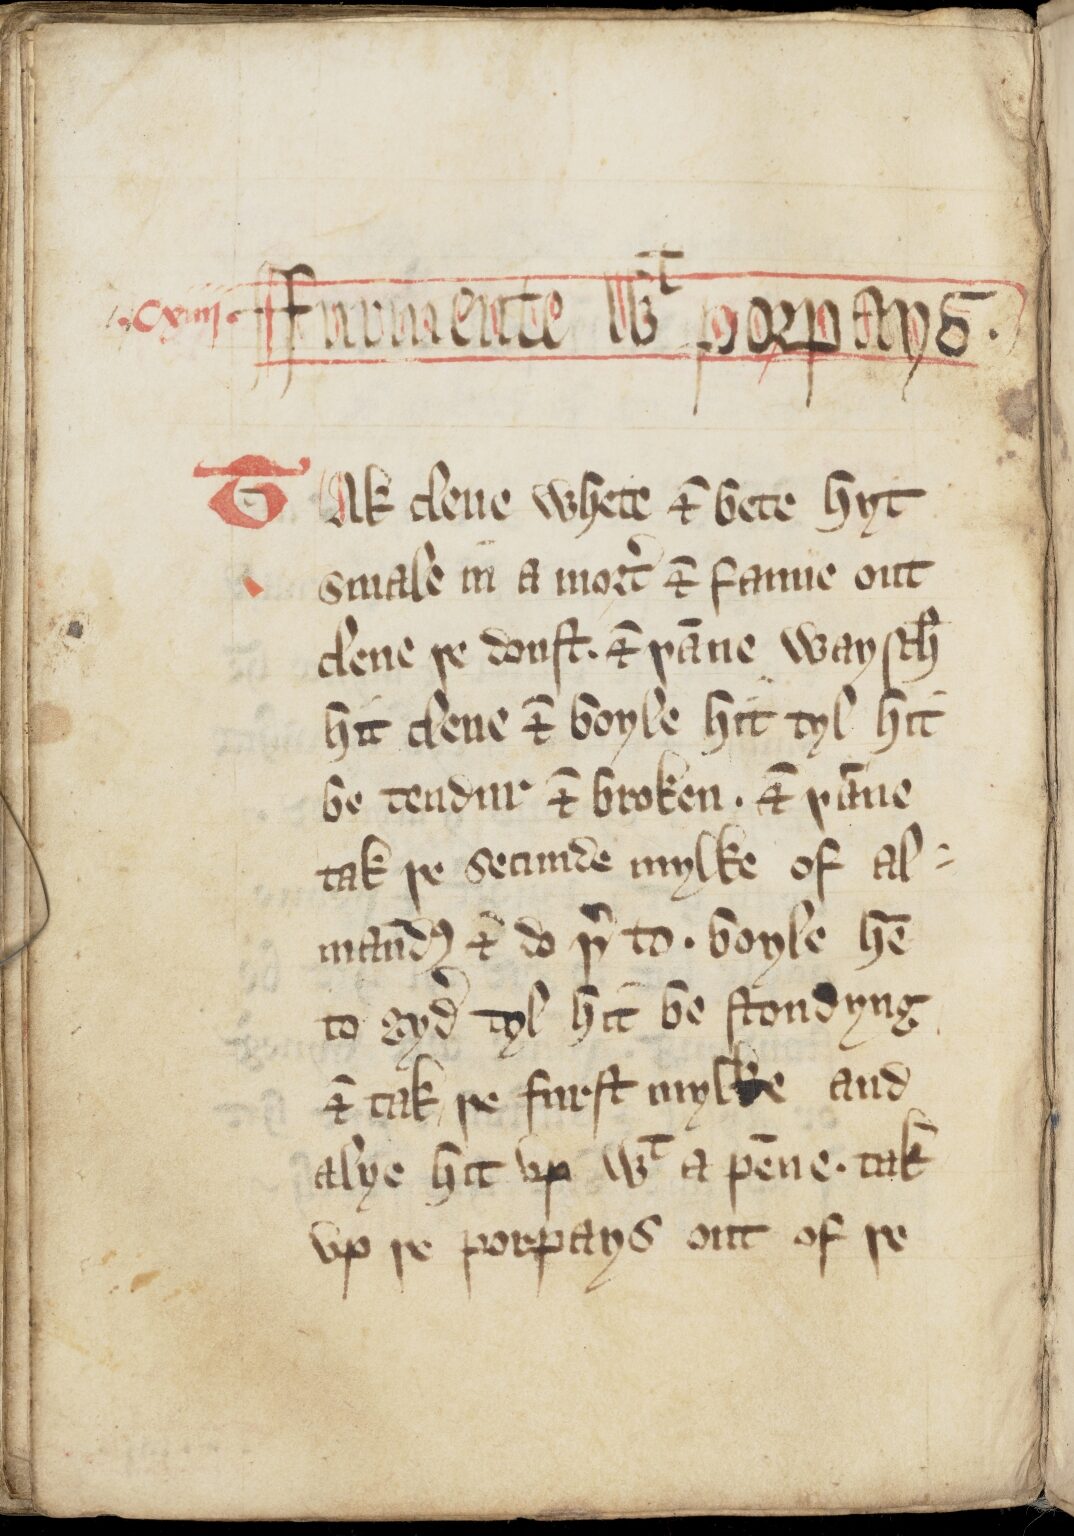 .cxiiij. ffurmente wᵗ porpays.
Tak clene whete ⁊ bete hyt
smale in a mort̉ ⁊ fanne out
clene þe doust. ⁊ þāne waysch
hit clene ⁊ boyle hit tyl hit
be tendur ⁊ broken. ⁊ þāne
tak þe secunde mylke of al-
maundꝭ ⁊ do þ̉ to. boyle hē
to gyd̉ tyl hit be stondyng
⁊ tak þe furst mylke and
alye hit vp wᵗ a pēne. tak
vp þe porpays out of þe